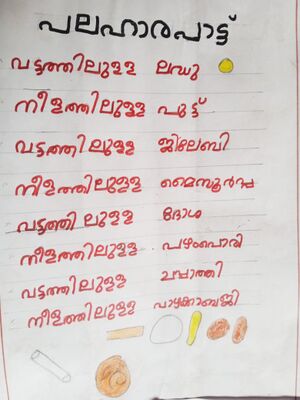 പലഹാരപാട്ട്
വട്ടത്തിലുള്ള ലഡു
നീളത്തിലുള്ള പുട്ട്
വട്ടത്തിലുള്ള ജിലേബി
നീളത്തിലുള്ള മൈസൂർപ്പ
വട്ടത്തിലുള്ള ദോശ
നീളത്തിലുള്ള പഴംപൊരി
വട്ടത്തിലുള്ള ചപ്പാത്തി
നീളത്തിലുള്ള